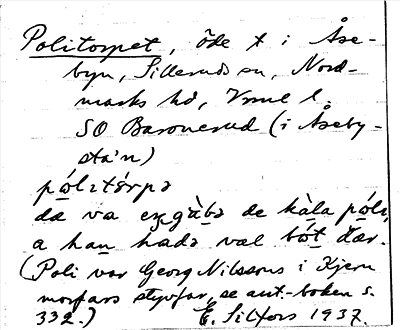 Politorpet, öde t i Åse-
byn, Sillerud sn, Nord-
marks hd, Vrml l.
SO Baronerud (i Åseby-
sta'n)
pólitórpə
dä va en gùbə de kàla póli,
a han hadə väl bót där.
(Poli var Georg Nilssons i Kjern
morfars styvfar, se ant.-boken s.
332.) E. Silfors 1937.